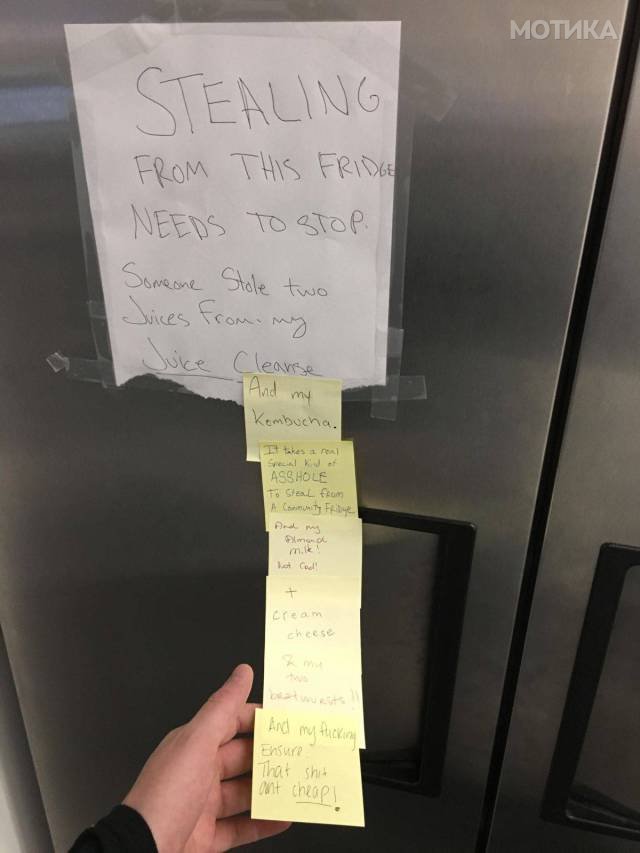 МОТИКА
STEALING
FROM THIS FRIDGE
NEEDS TO STOP.
Someone Stole two
Juices From my
Juice Cleanse
And my
Kombucha.
It takes a real
Special Kind of
ASSHOLE
To Steal from
A Community Fridge
And my
Almond
milk!
Not Cool!
+
cream
cheese
& my
two
bratwursts!!
And my fucking
Ensure.
That shit
aint cheap!